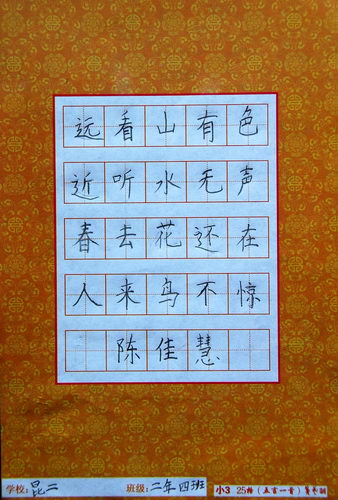 远看山有色
近听水无声
春去花还在
人来鸟不惊
陈佳慧
学校:昆二 班级:二年四班 小3 25格(五言一章)